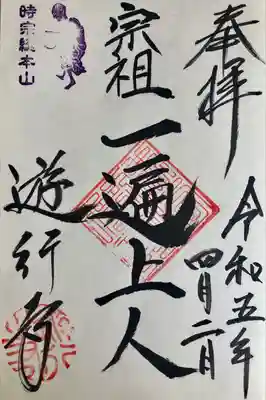 奉拝
令和五年
四月二日
宗祖
一遍上人
時宗総本山
遊行寺